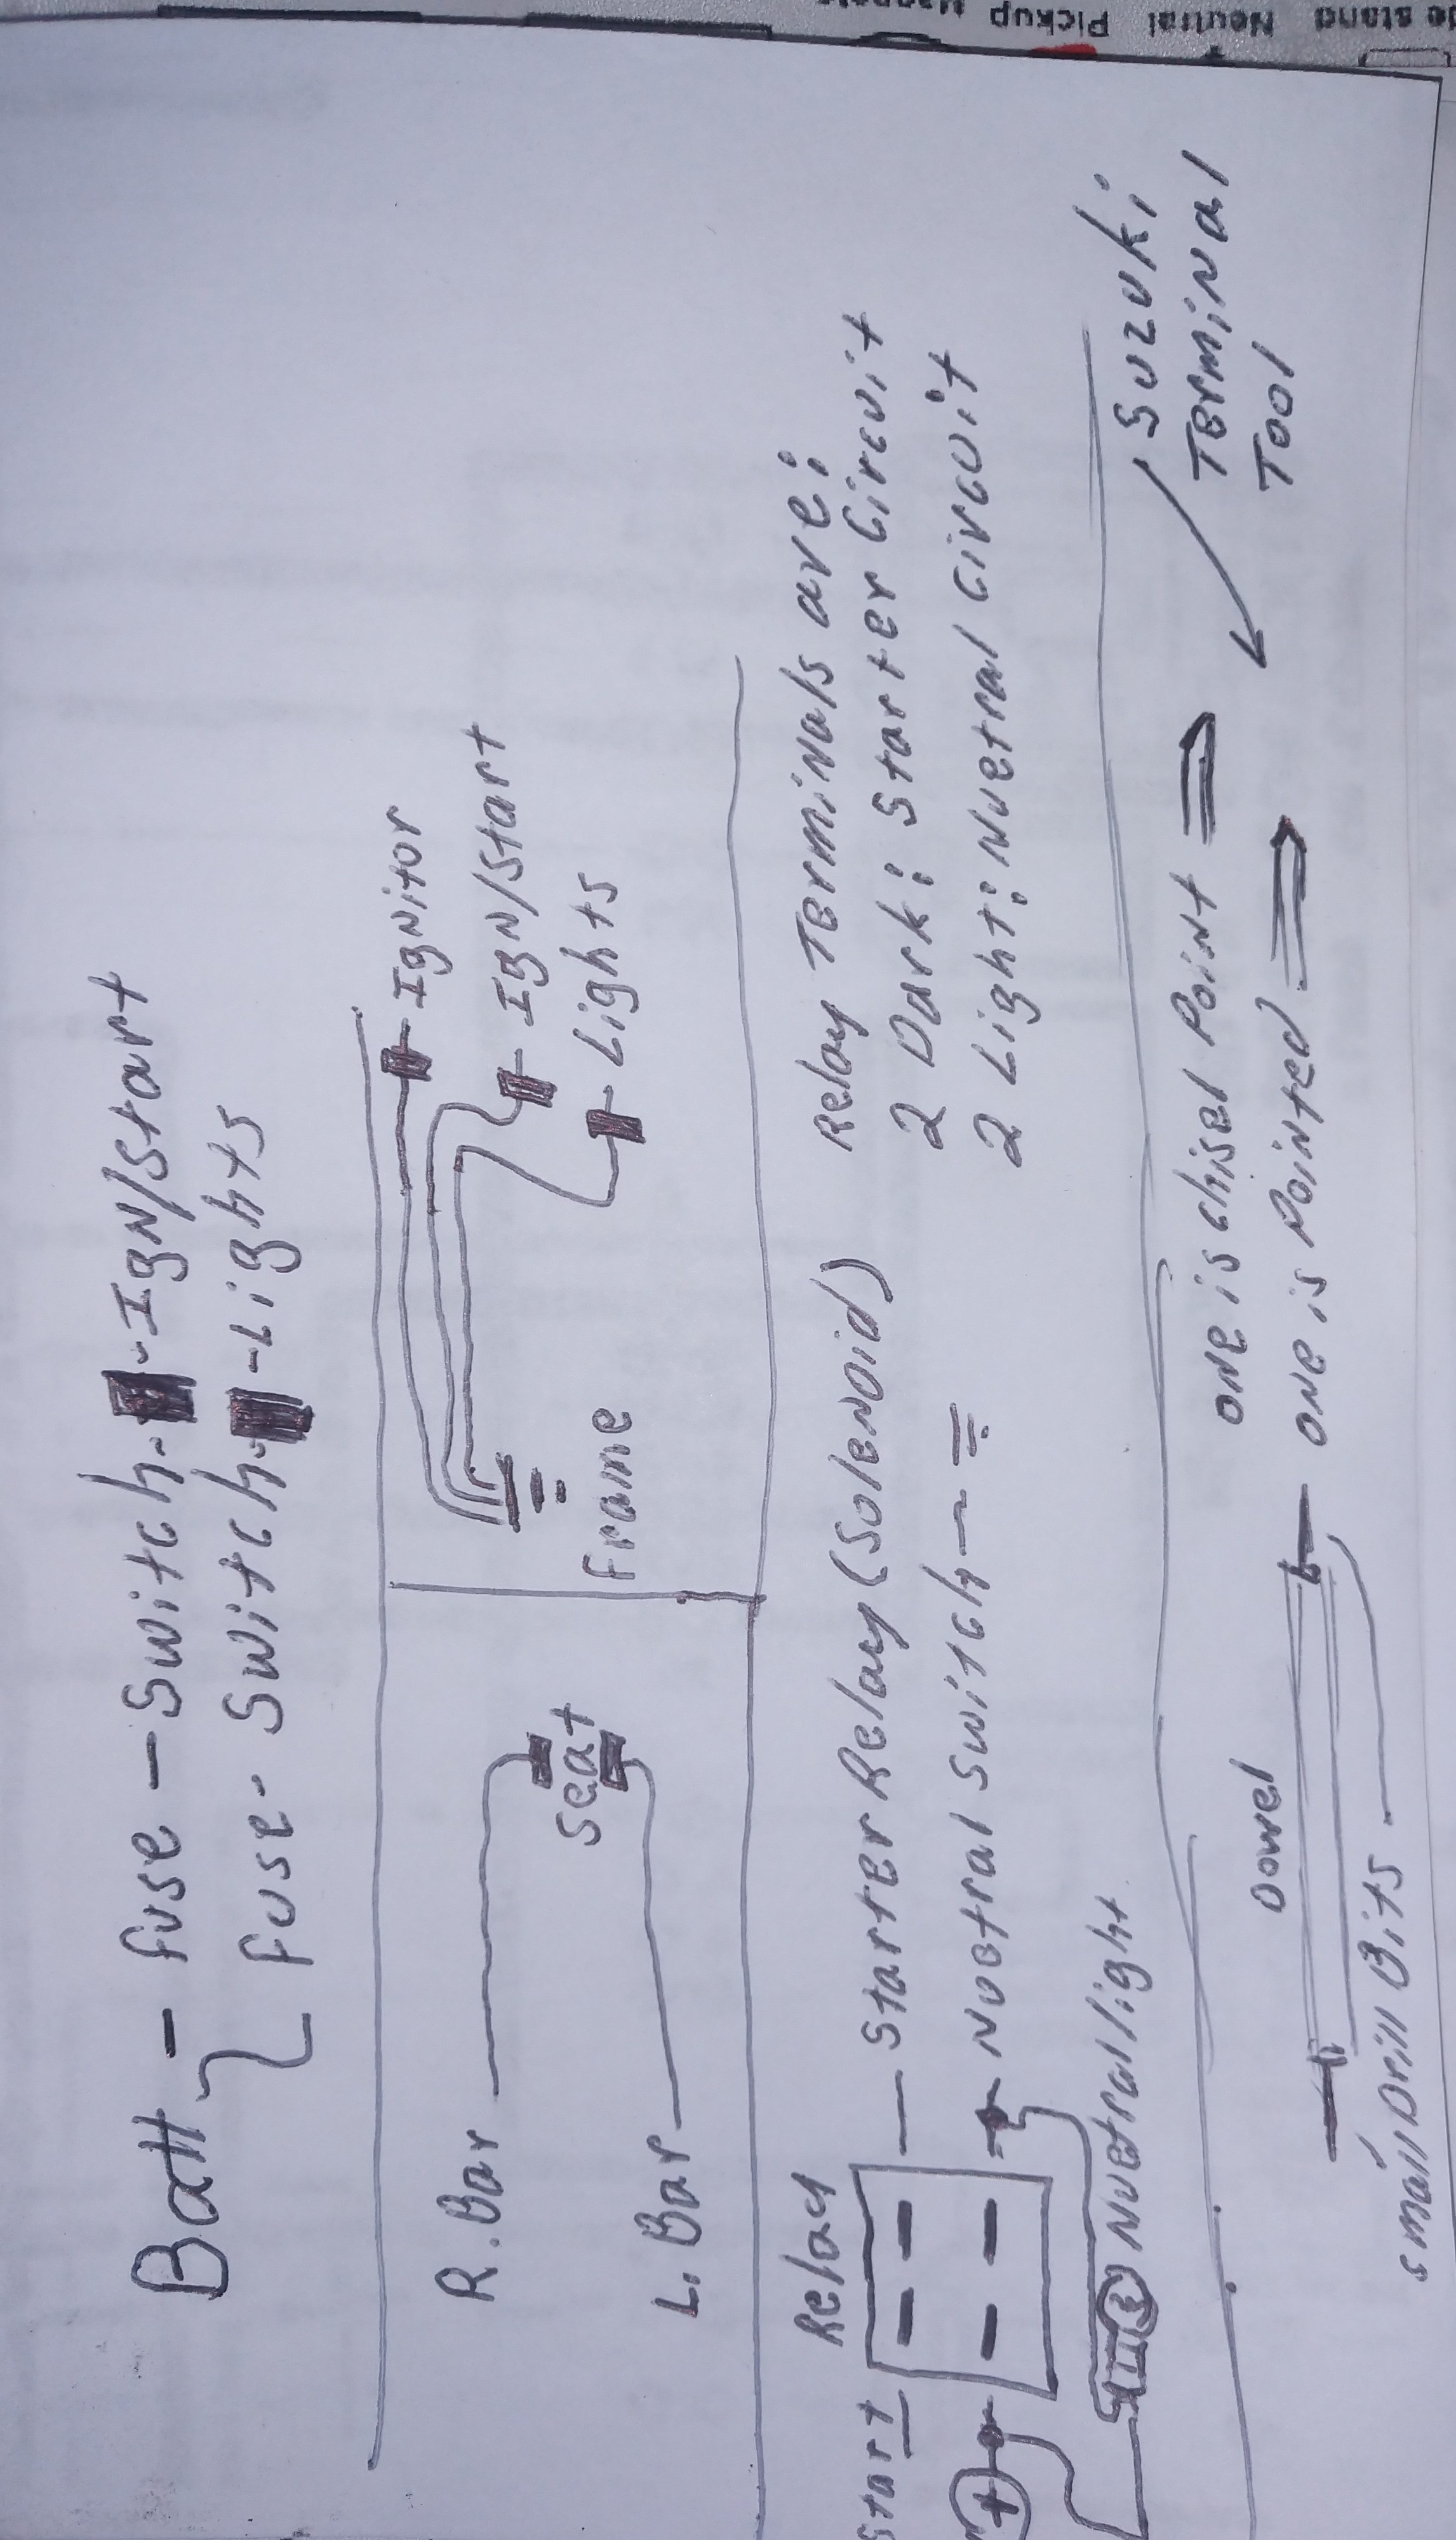 Batt - fuse - Switch - - Ign/Start
fuse - Switch - - Lights
R. Bar
Seat
L. Bar
Ignitor
Ign/Start
Lights
Frame
Relay
Start
+
Starter Relay (Solenoid)
Nuetral Switch
Nuetral light
Relay Terminals are:
2 Dark: Starter Circuit
2 Light: Nuetral circuit
Dowel
Small Drill Bits
one is chisel Point
one is Pointed
Suzuki
Terminal
Tool
stand Neutral Pickup